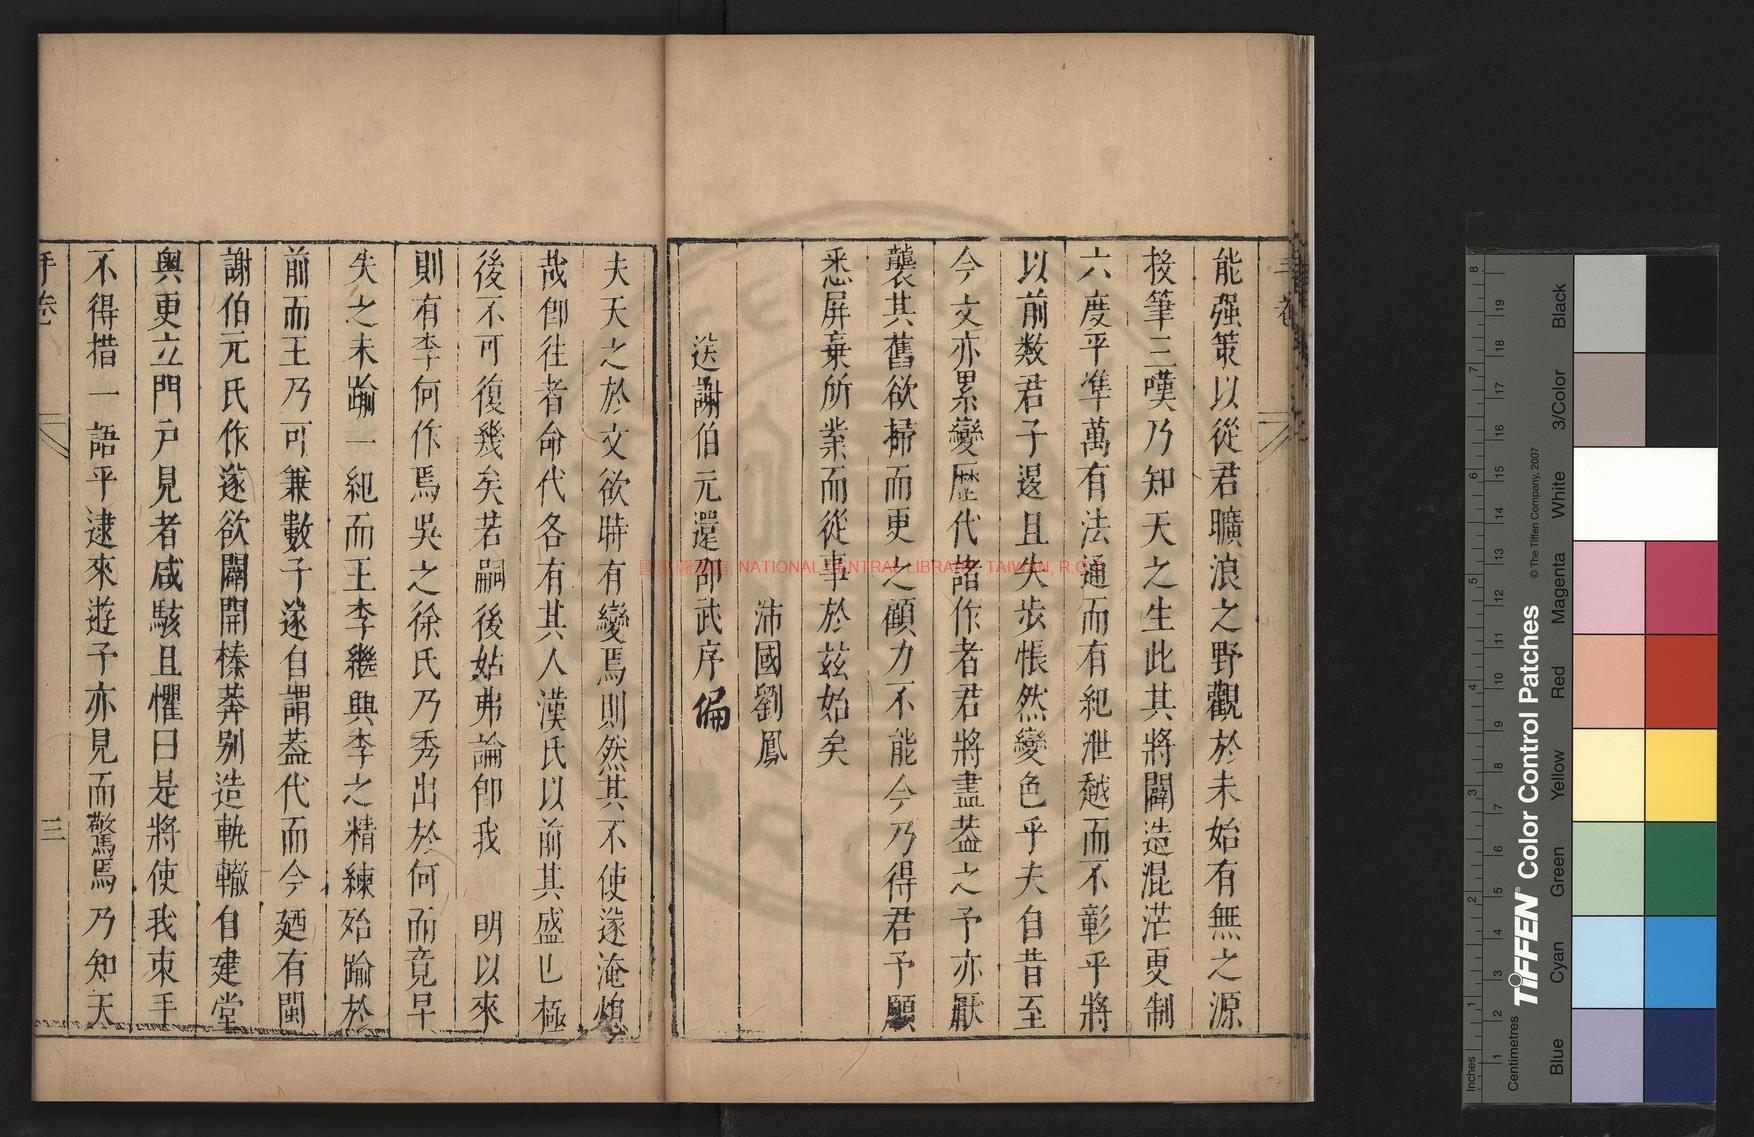 能强策以從君曠浪之野觀於未始有無之源
投筆三嘆乃知天之生此其將闢造混茫更制
六度平準萬有法通而有紀泄越而不彰乎將
以前数君子邊且失歩悵然變色乎夫自昔至
今文亦累變歷代諸作者君將盡葢之予亦厭
襲其舊欲掃而更之顧力不能今乃得君予願
悉屏棄所業而從事於茲始矣
沛國劉鳳
送謝伯元還卲武序 偏
夫天之於文欲時有變焉則然其不使遂淹熄
哉卽徃者命代各有其人漢氏以前其盛已極
後不可復幾矣若嗣後姑弗論卽我 明以來
則有李何作焉吳之徐氏乃秀出於何而竟早
失之未踰一紀而王李繼興李之精練殆踰於
前而王乃可兼數子遂自謂葢代而今廼有閩
謝伯元氏作遂欲闢開榛莽别造軌轍自建堂
奥更立門戸見者咸駭且懼曰是將使我束手
不得措一語乎逮來遊予亦見而驚焉乃知天
三
國家圖書館, NATIONAL CENTRAL LIBRARY, TAIWAN, R.O.C
Inches
Centimetres
TIFFEN® Color Control Patches
© The Tiffen Company, 2007
Blue
Cyan
Green
Yellow
Red
Magenta
White
3/Color
Black